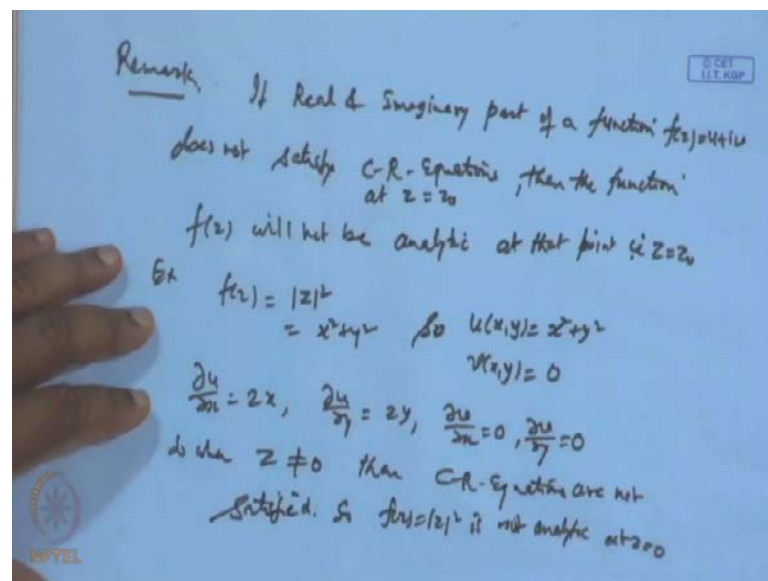 Remark. If Real & Imaginary part of a function f(z)=u+iv
© CET
I.I.T. KGP
does not satisfy C-R-Equations, then the function
at z=z₀
f(z) will not be analytic at that point ie z=z₀
Ex f(z) = |z|²
= x²+y² So u(x,y)= x²+y²
v(x,y)= 0
∂u/∂x = 2x, ∂u/∂y = 2y, ∂v/∂x =0, ∂v/∂y =0
So when z ≠0 then C-R-Equations are not
satisfied. So f(z)=|z|² is not analytic at z=0
NPTEL